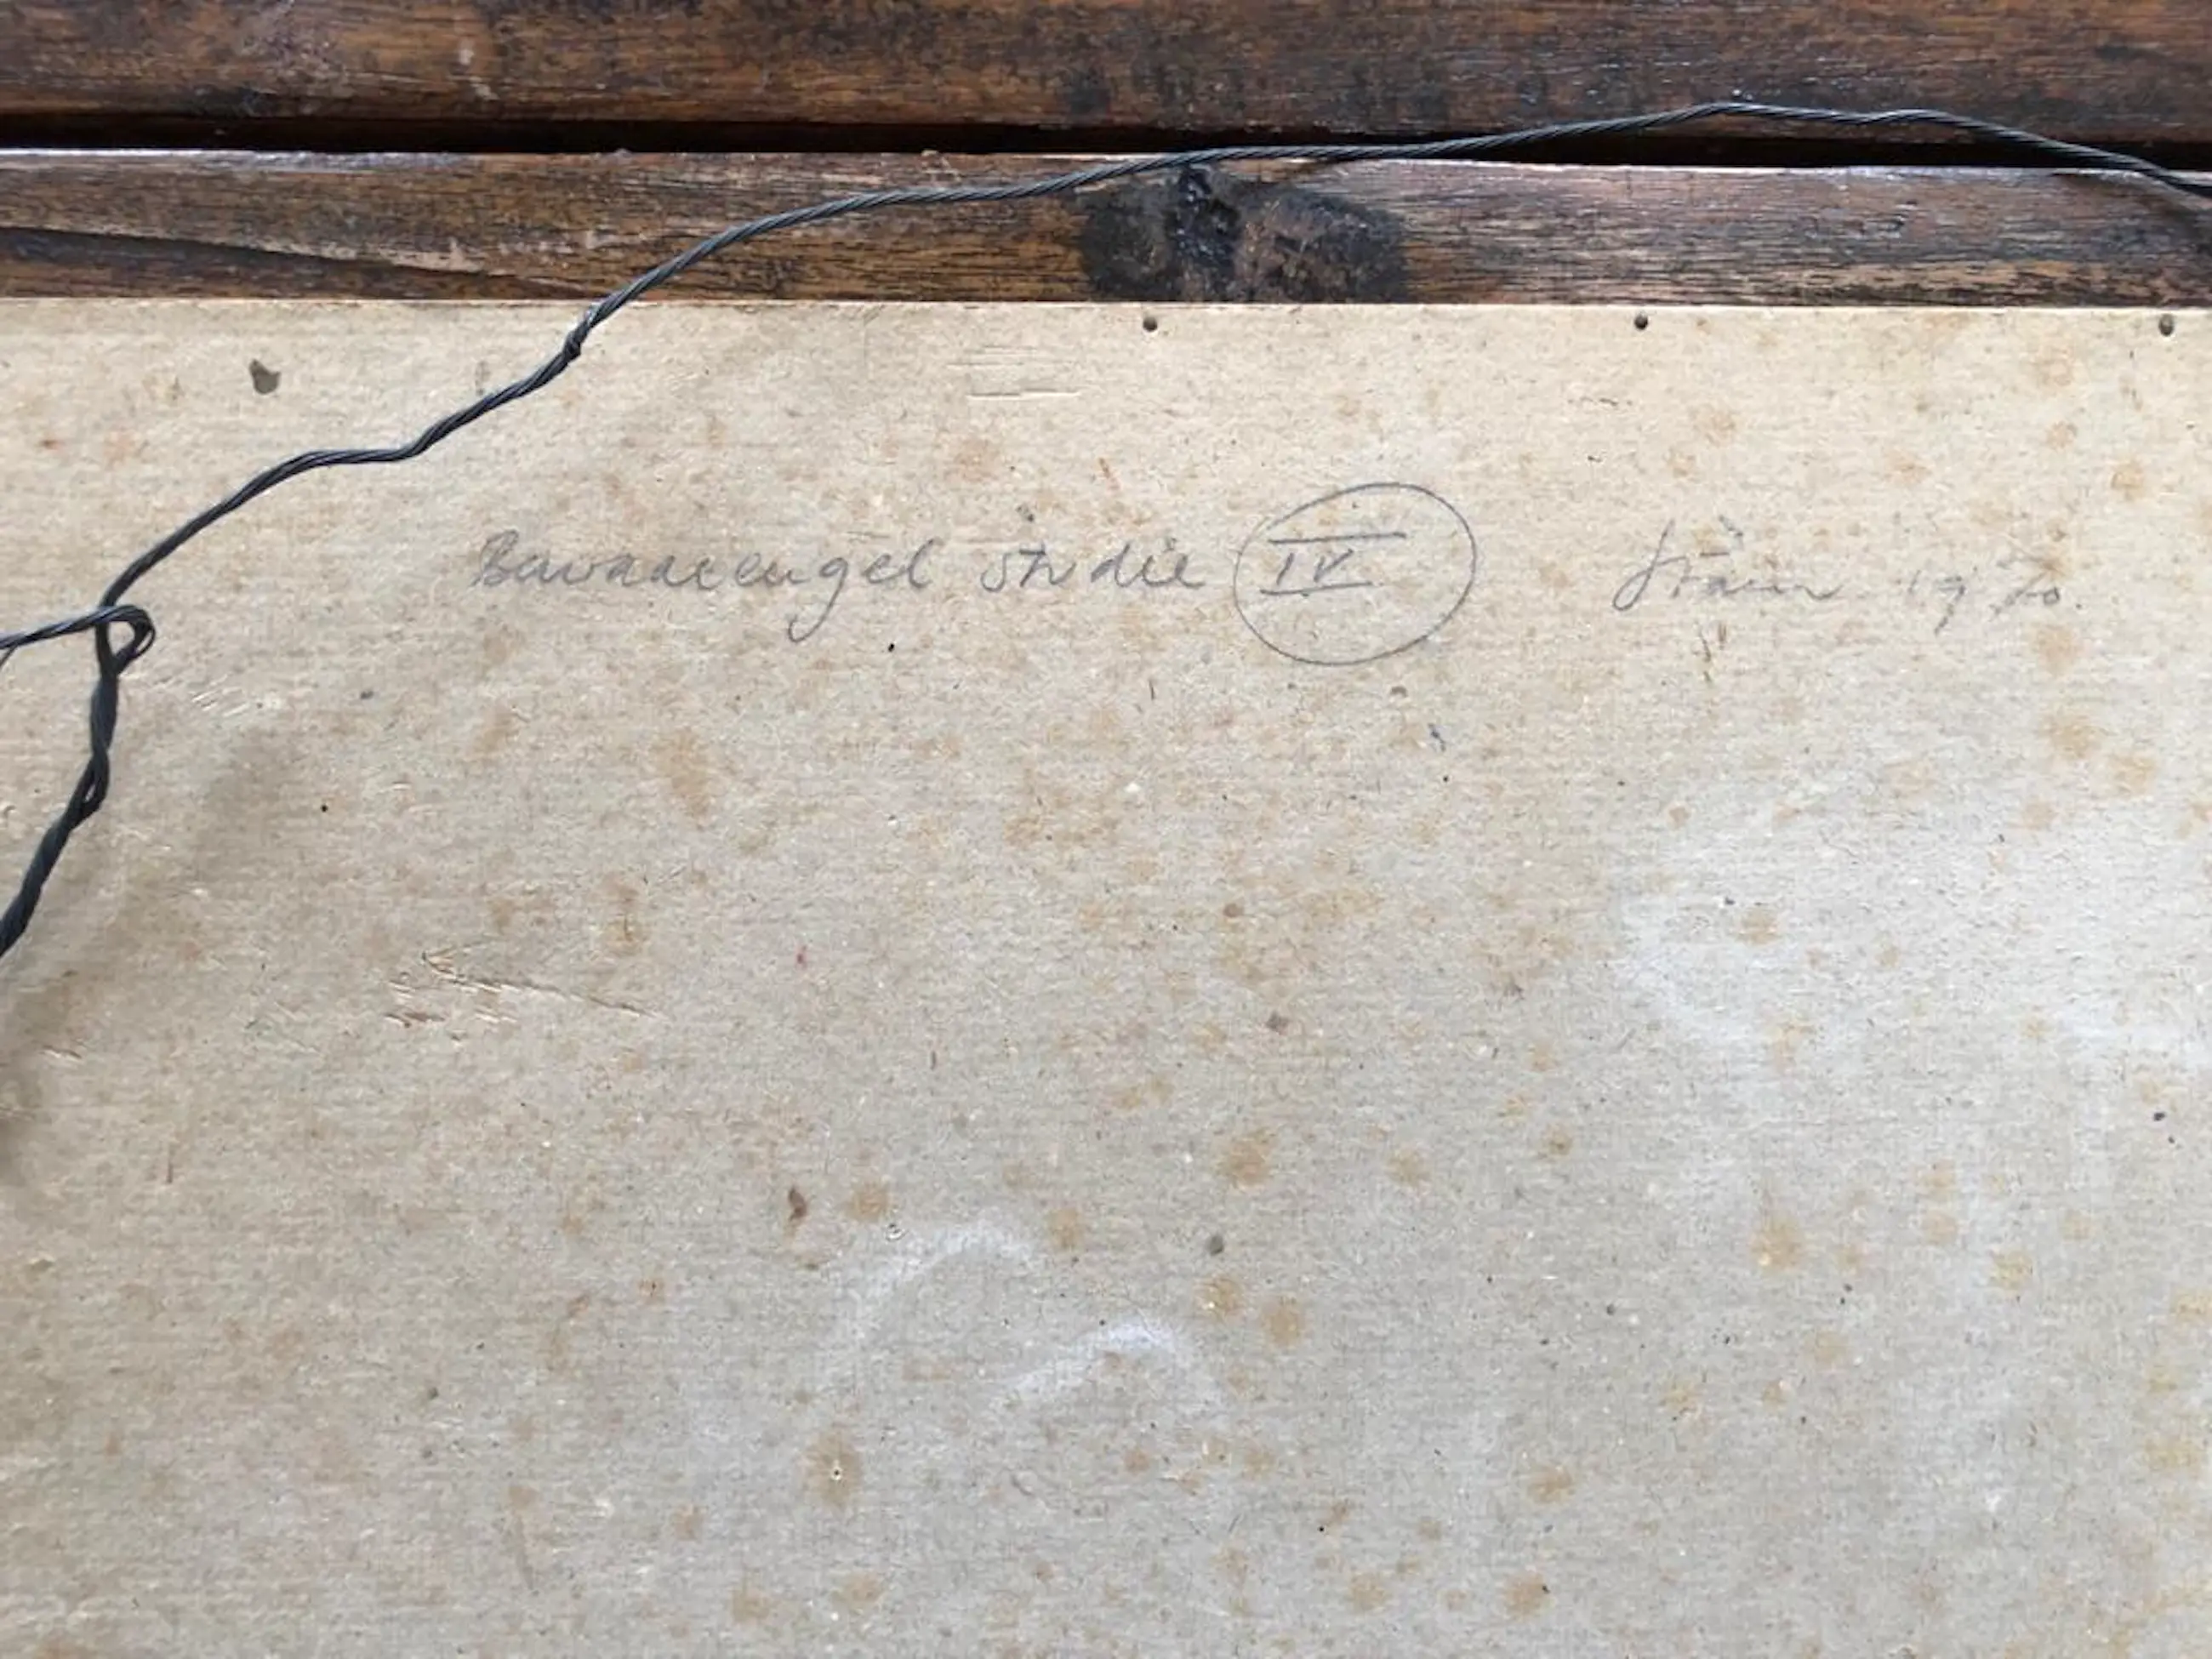 Bewaarengel studie IV 1970.